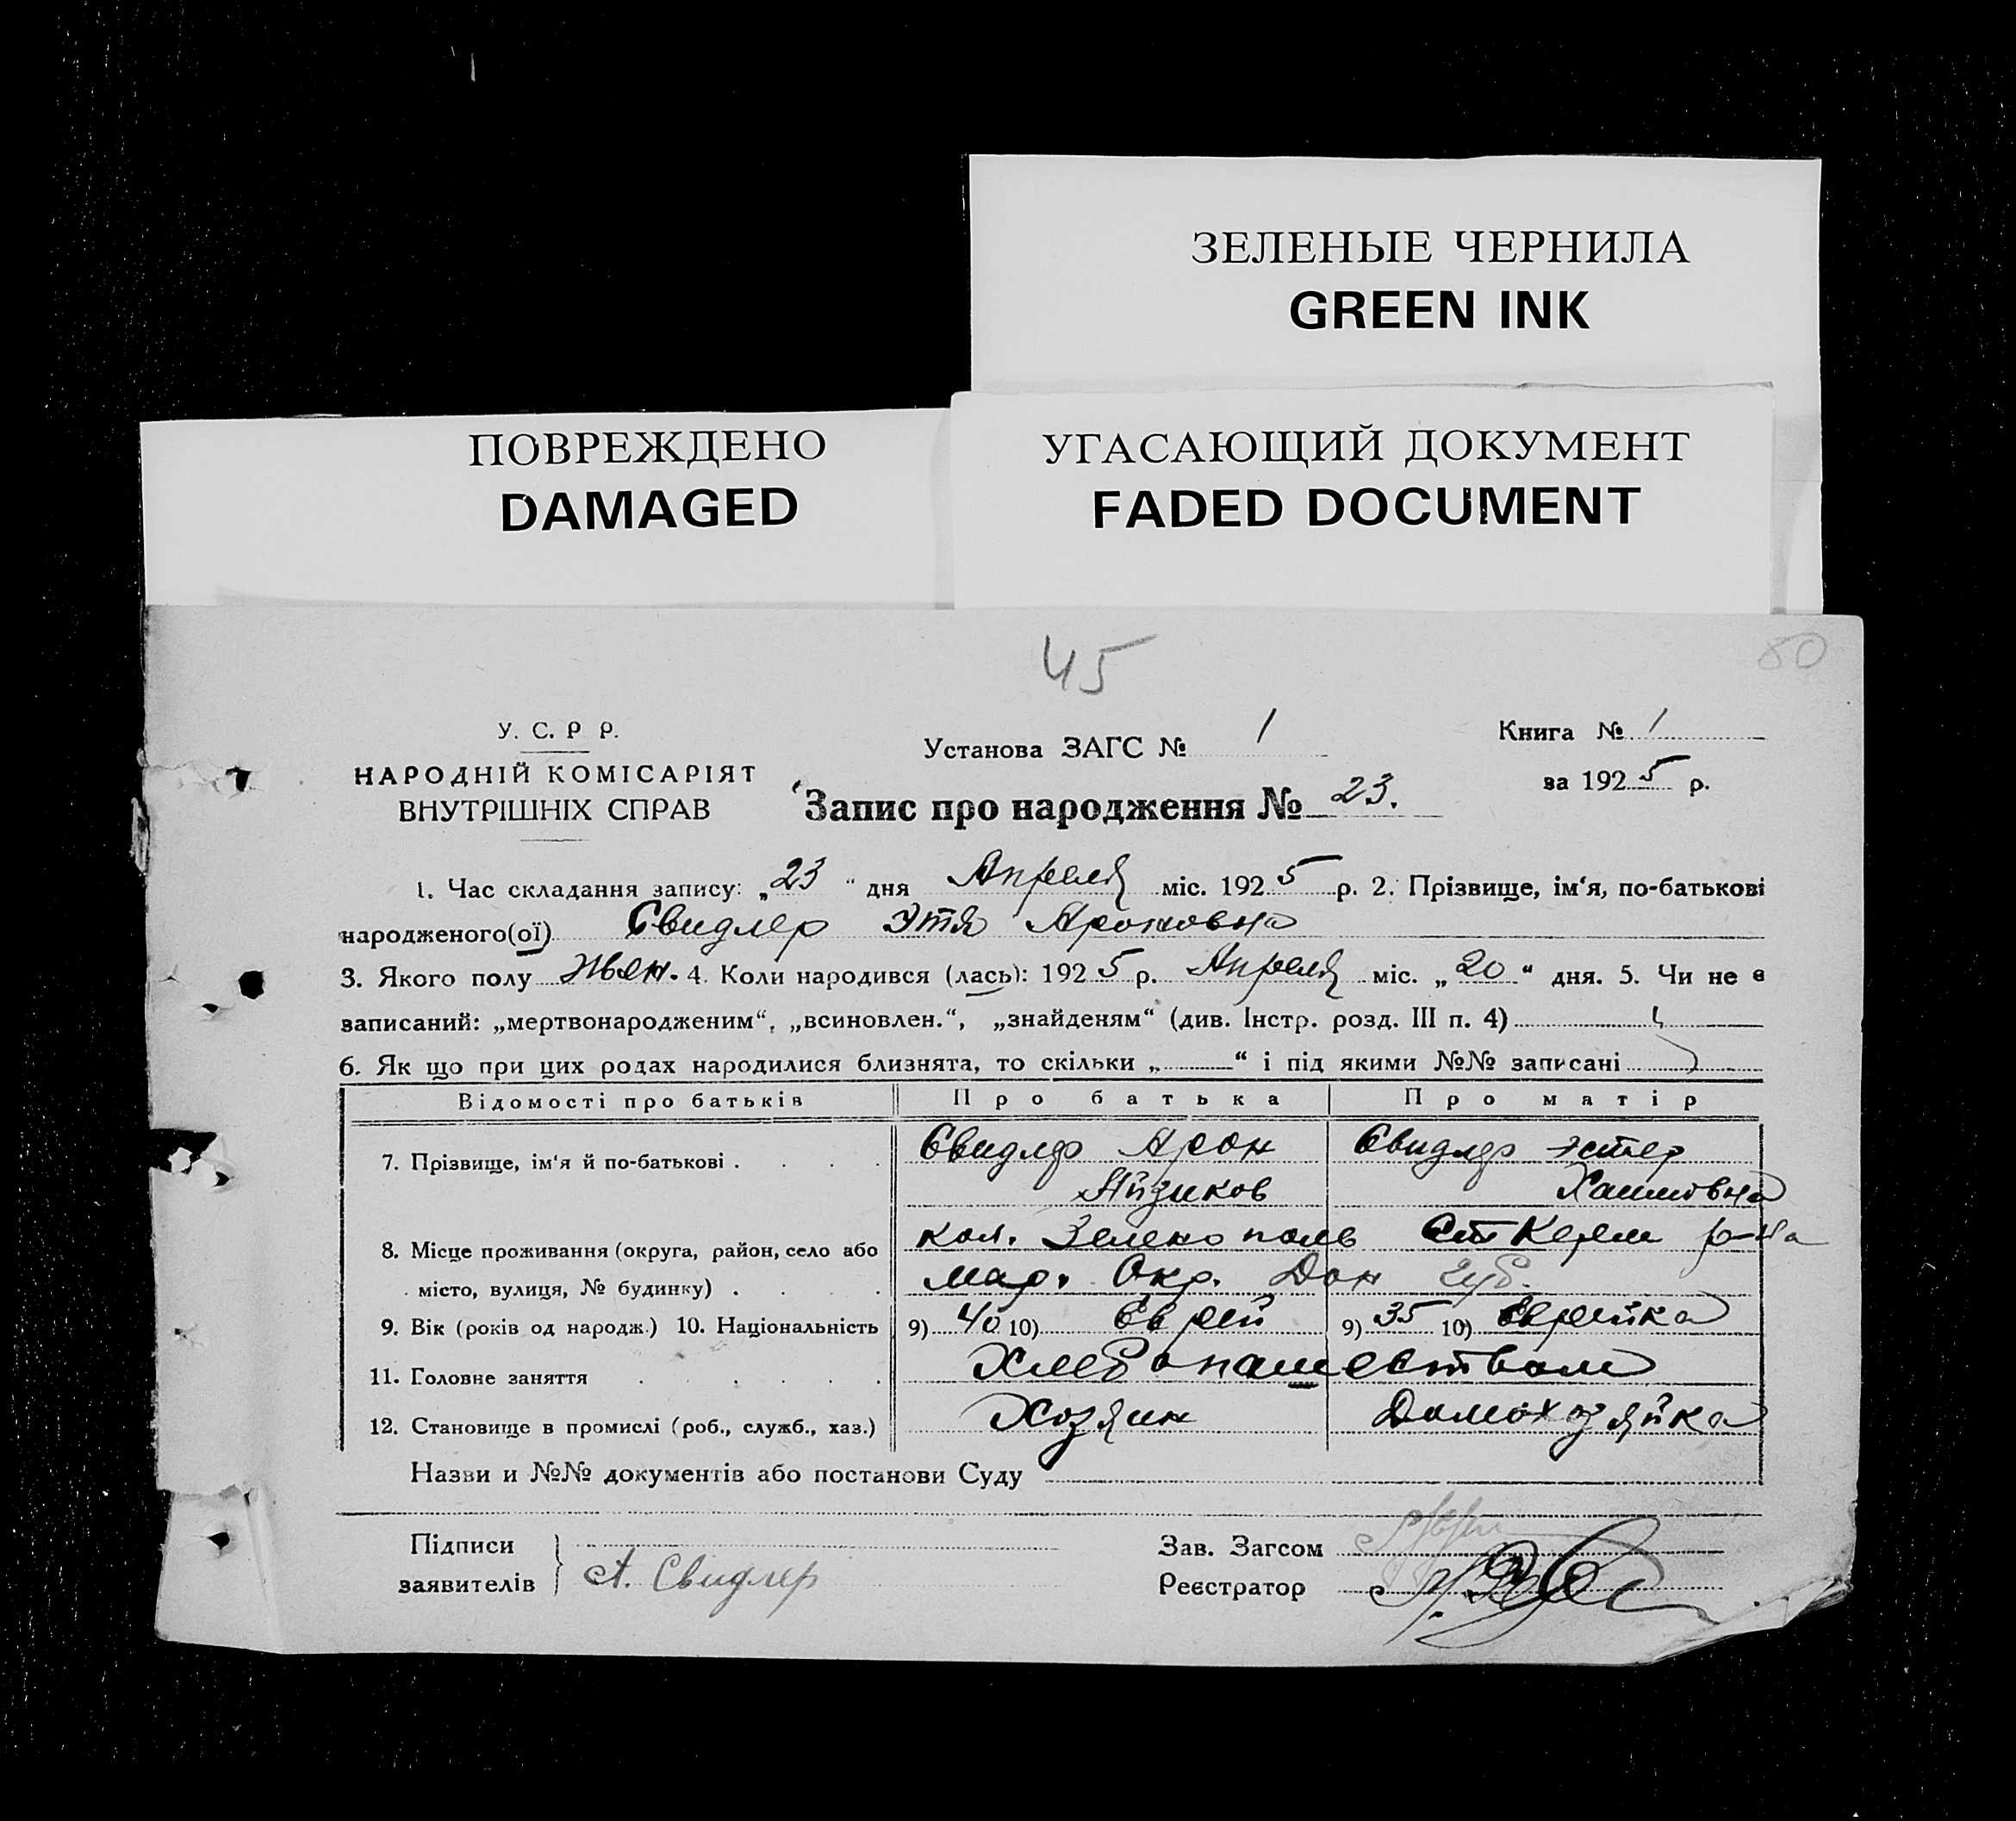 ЗЕЛЕНЫЕ ЧЕРНИЛА
GREEN INK
ПОВРЕЖДЕНО
DAMAGED
УГАСАЮЩИЙ ДОКУМЕНТ
FADED DOCUMENT
45
80
У. С. Р Р.
НАРОДНІЙ КОМІСАРІЯТ
ВНУТРІШНІХ СПРАВ
Установа ЗАГС № 1
Книга № 1
за 1925 р.
Запис про народження № 23.
1. Час складання запису: „23" дня Апреля міс. 1925 р. 2. Прізвище, ім'я, по-батькові
народженого(ої) Свидлер Этя Ароновна
3. Якого полу жен. 4. Коли народився (лась): 1925 р. Апреля міс. „20" дня. 5. Чи не є
записаний: „мертвонародженим", „всиновлен.", „знайденям" (див. Інстр. розд. III п. 4)
6. Як що при цих родах народилися близнята, то скільки „ " і під якими №№ записані
Відомості про батьків Про батька Про матір
7. Прізвище, ім'я й по-батькові . . . . Свидлер Арон Свидлер Эстер
Айзиков Хаимовна
8. Місце проживання (округа, район, село або кол. Зеленополь Ст Керем р-на
місто, вулиця, № будинку) . . . Мар. Окр. Дон Губ.
9. Вік (років од народж.) 10. Національність 9) 40 10) Еврей 9) 35 10) Еврейка
11. Головне заняття . . . . . . Хлебопашеством
12. Становище в промислі (роб., служб., хаз.) Хозяин Домохозяйка
Назви и №№ документів або постанови Суду
Підписи
заявителів А. Свидлер
Зав. Загсом
Реєстратор